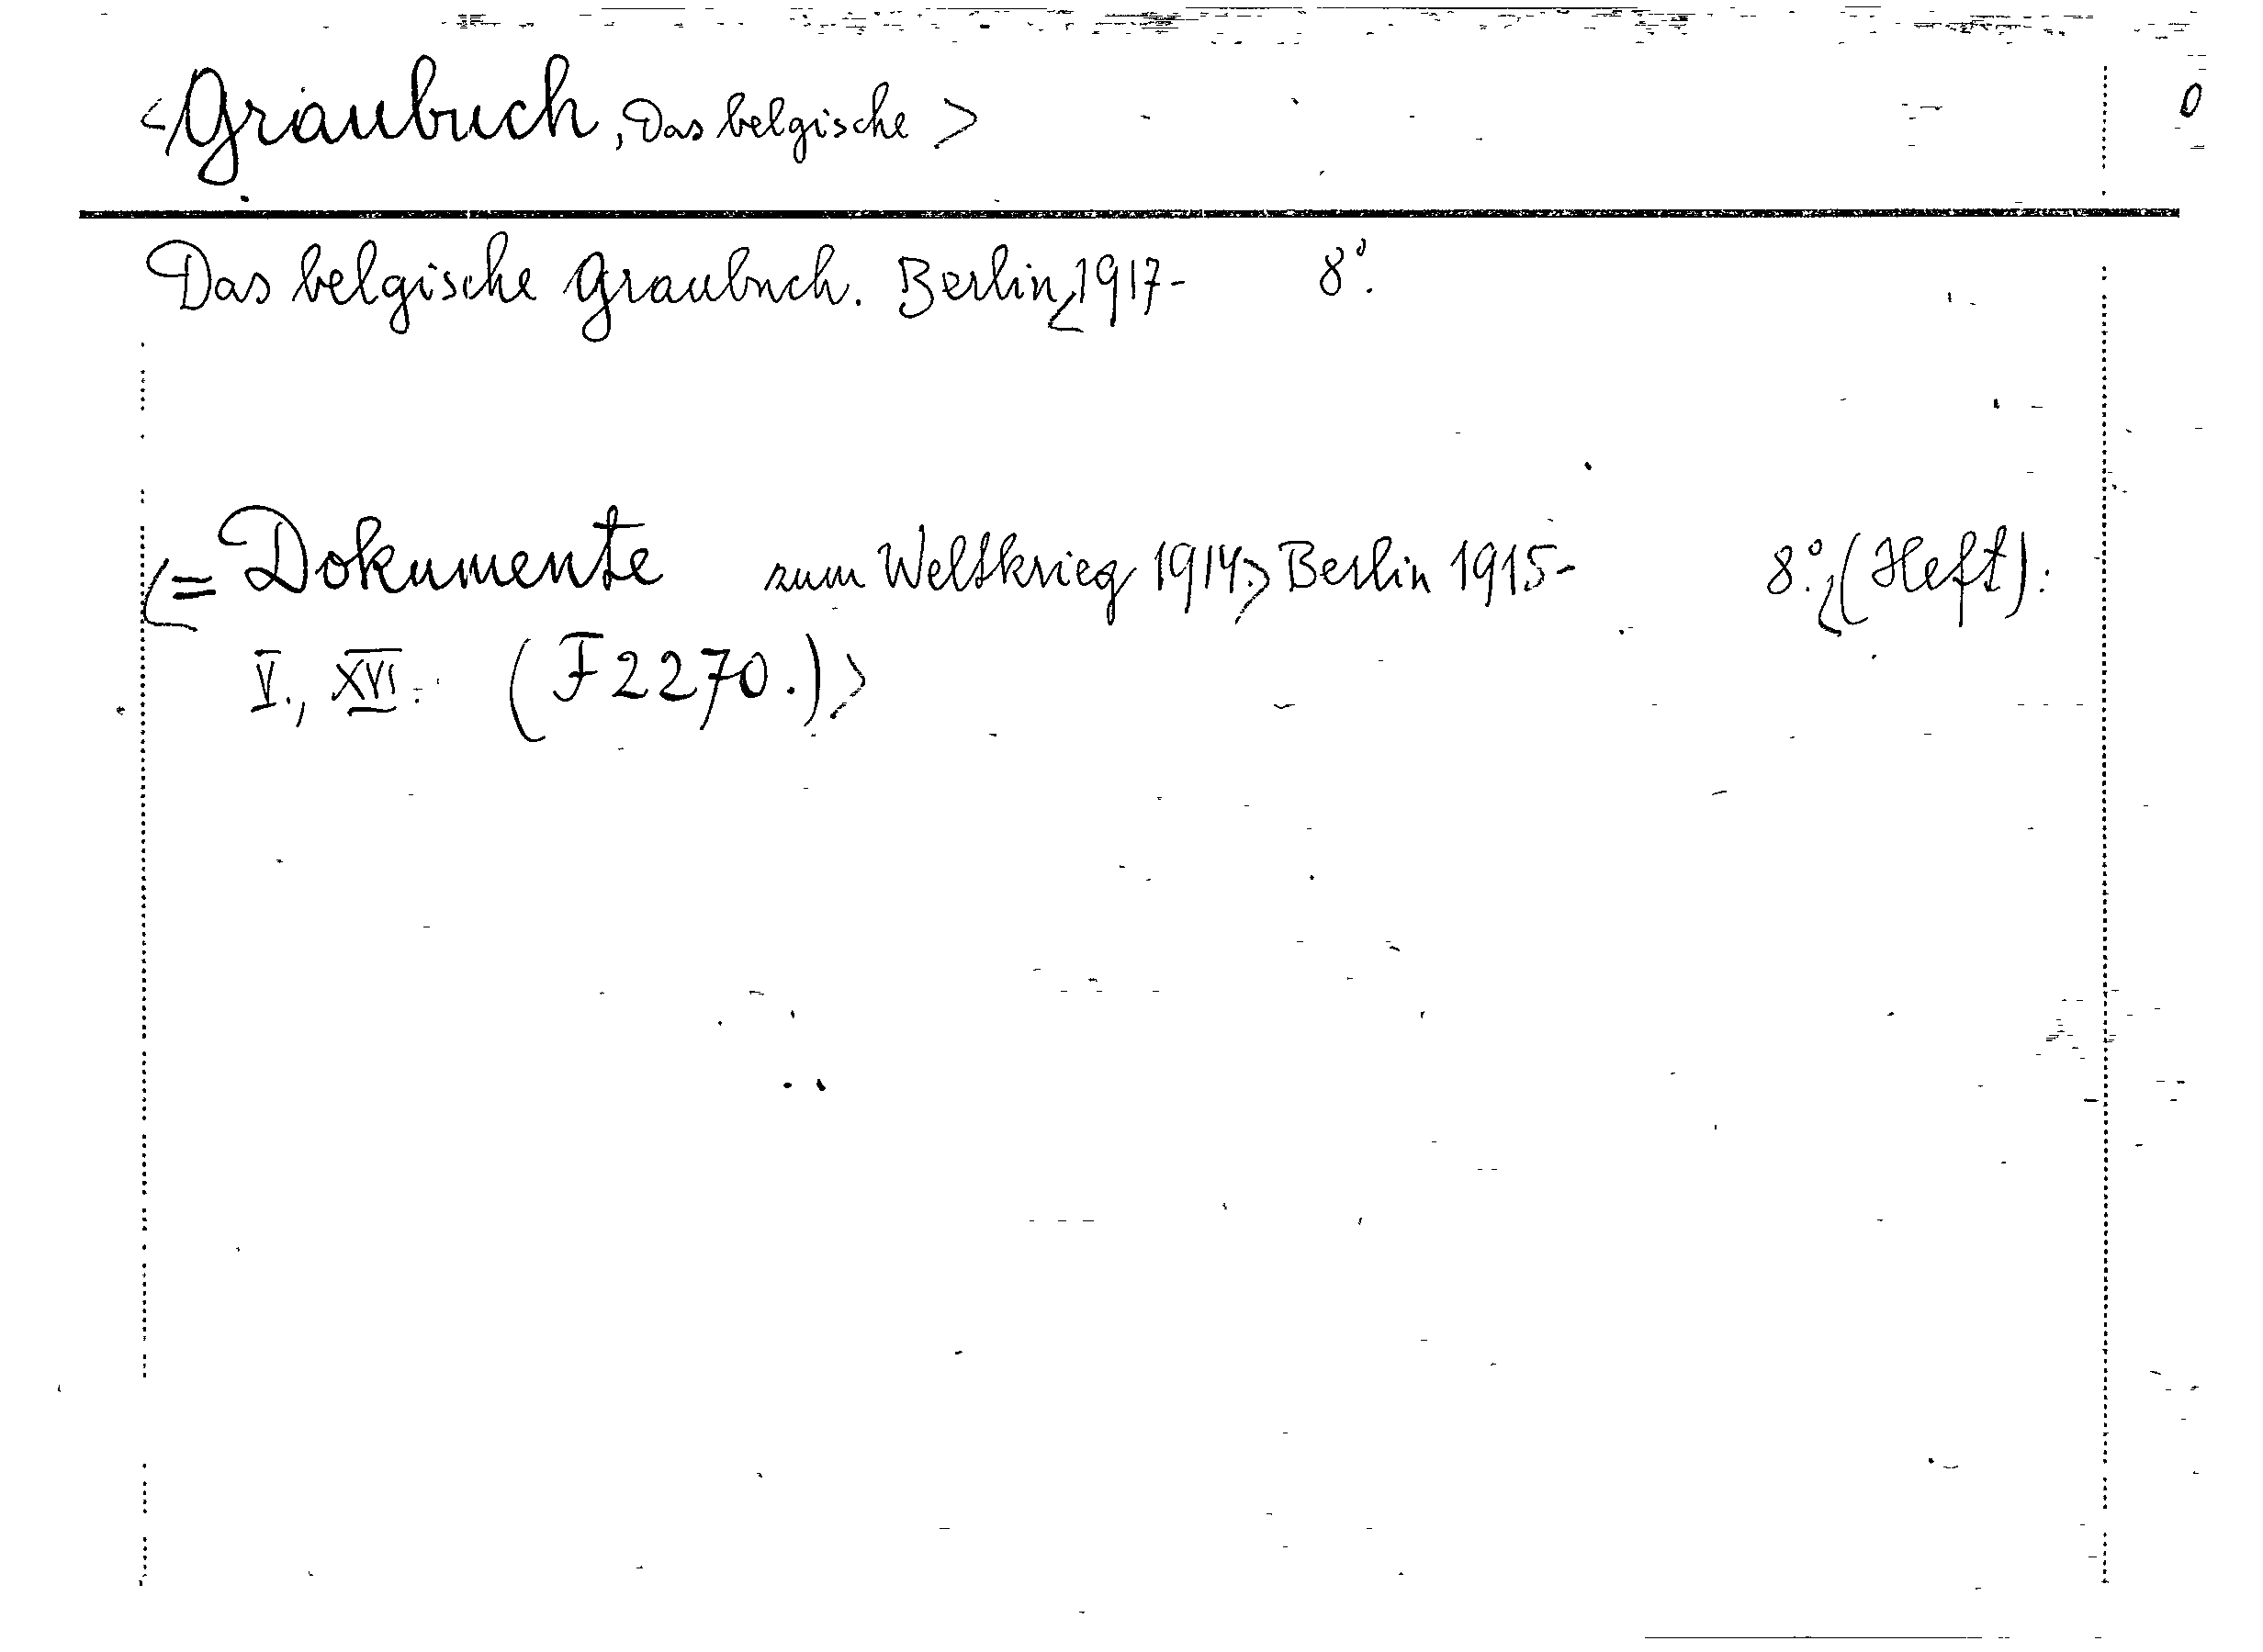 <Graubuch, Das belgische> 0
Das belgische Graubuch. Berlin <1917- 8°.
<= Dokumente zum Weltkrieg 1914.> Berlin 1915- 8°. <(Heft):
V., XVI. (F2270.)>